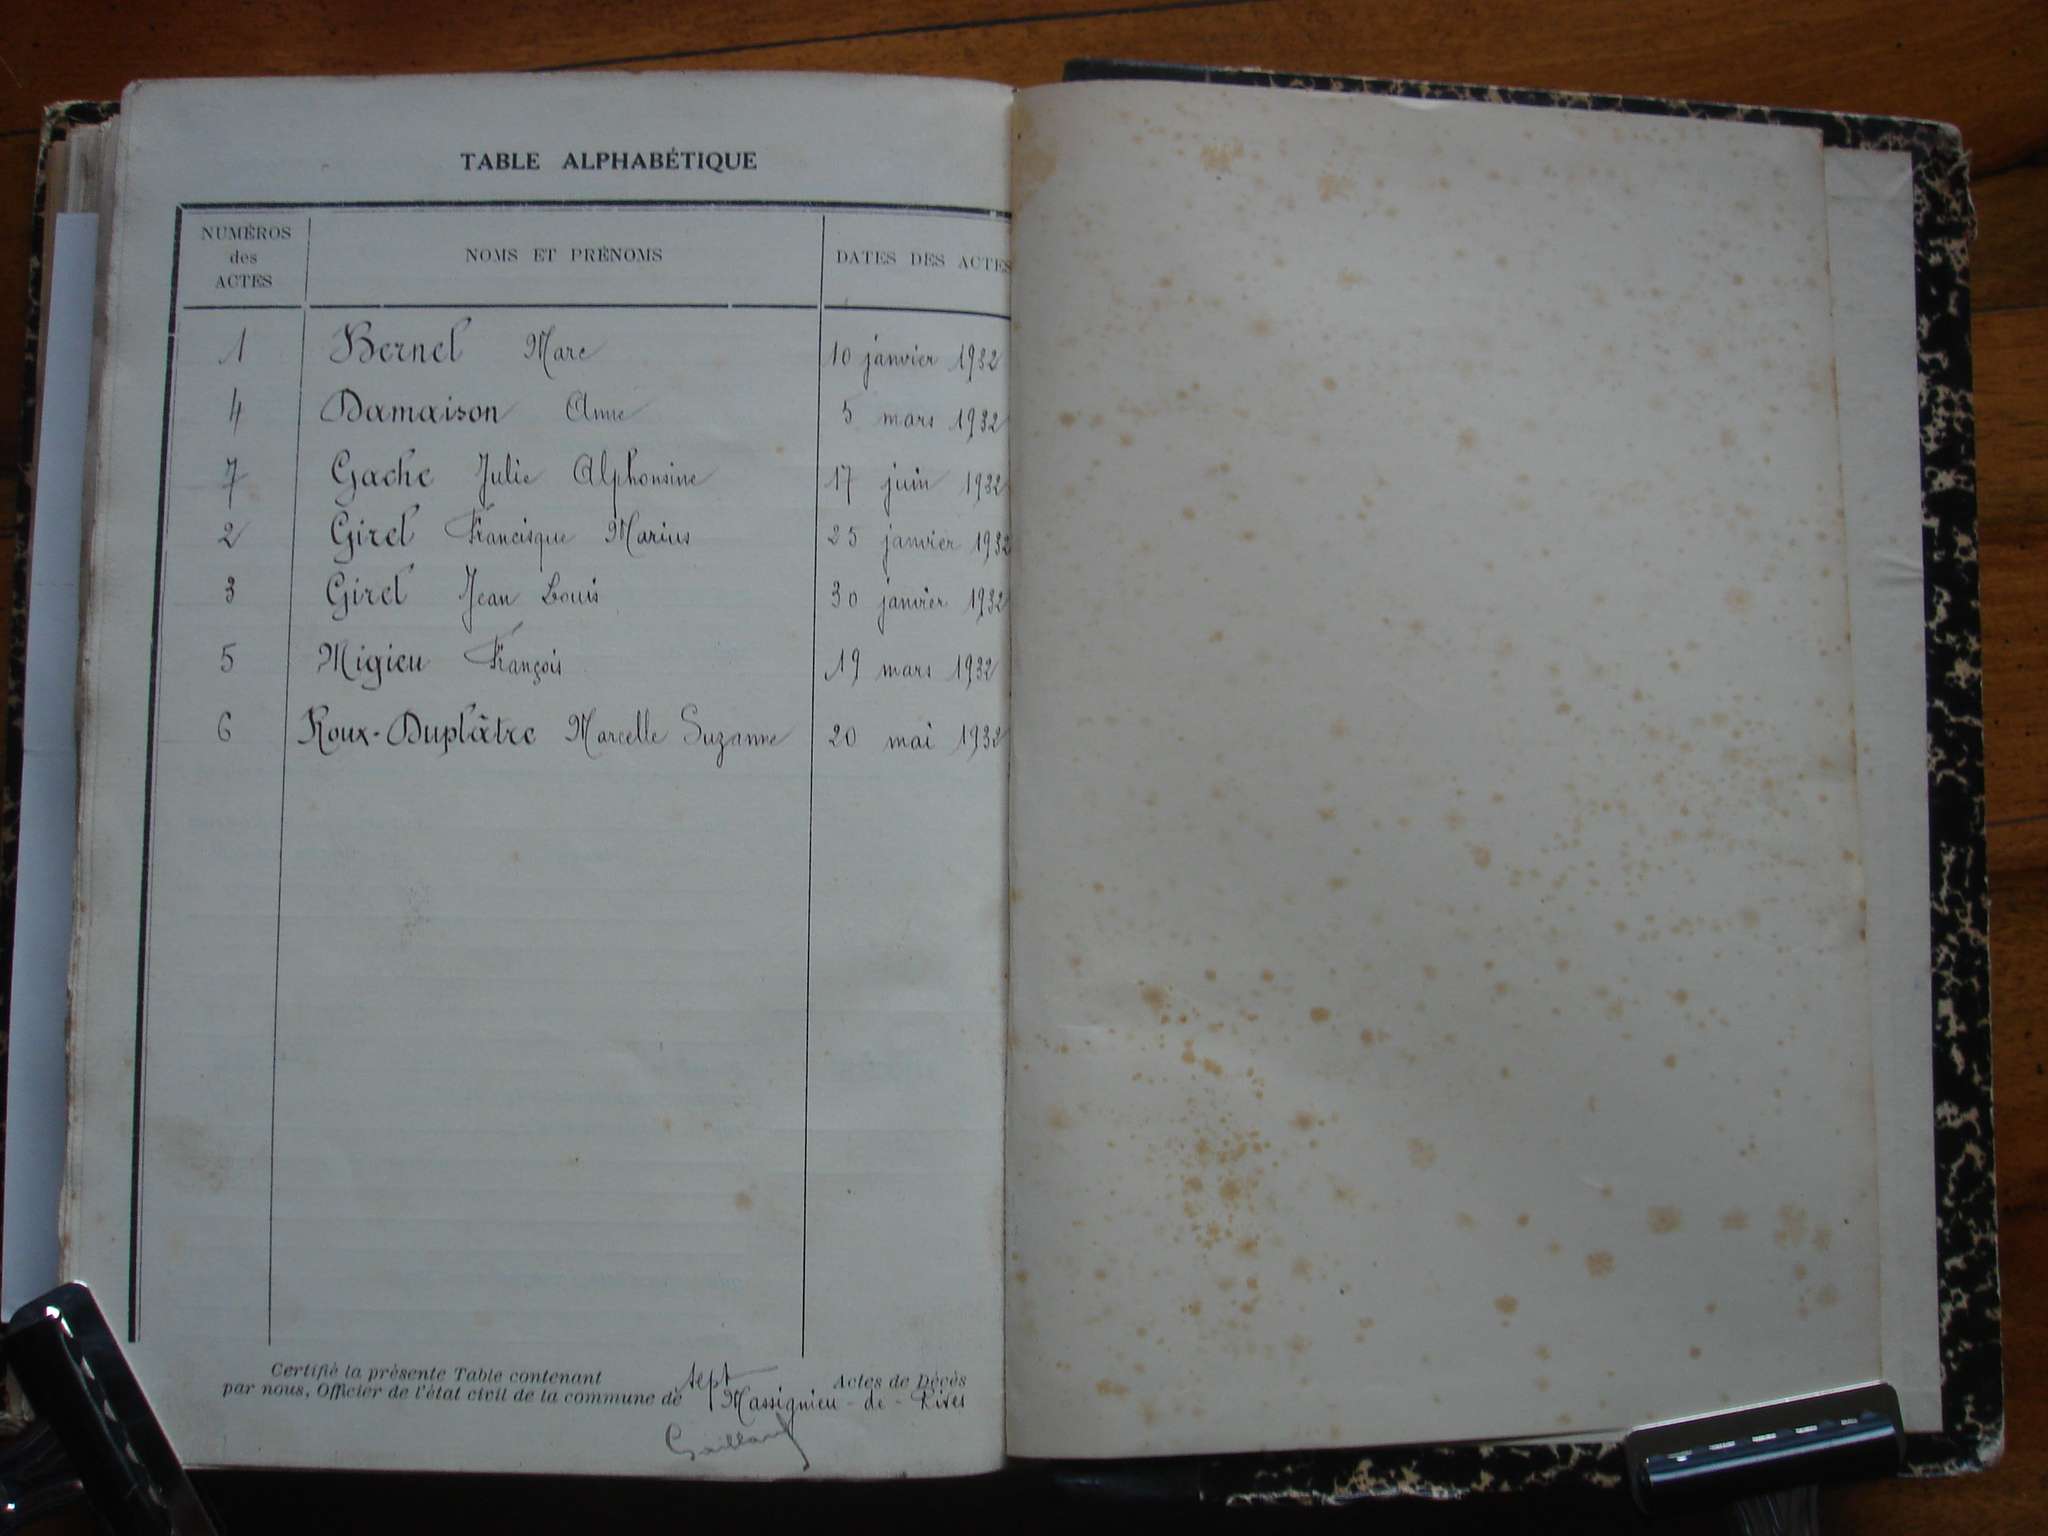 TABLE ALPHABÉTIQUE
NUMÉROS des ACTES NOMS ET PRÉNOMS DATES DES ACTES
1 Bernel Marc 10 janvier 1932
4 Damaison Anne 5 mars 1932
7 Gache Julie Alphonsine 17 juin 1932
2 Girel Francisque Marius 25 janvier 1932
3 Girel Jean Louis 30 janvier 1932
5 Migieu François 19 mars 1932
6 Roux-Duplâtre Marcelle Suzanne 20 mai 1932
Certifié la présente Table contenant sept Actes de Décès
par nous, Officier de l'état civil de la commune de Massignieu-de-Rives
Gaillard